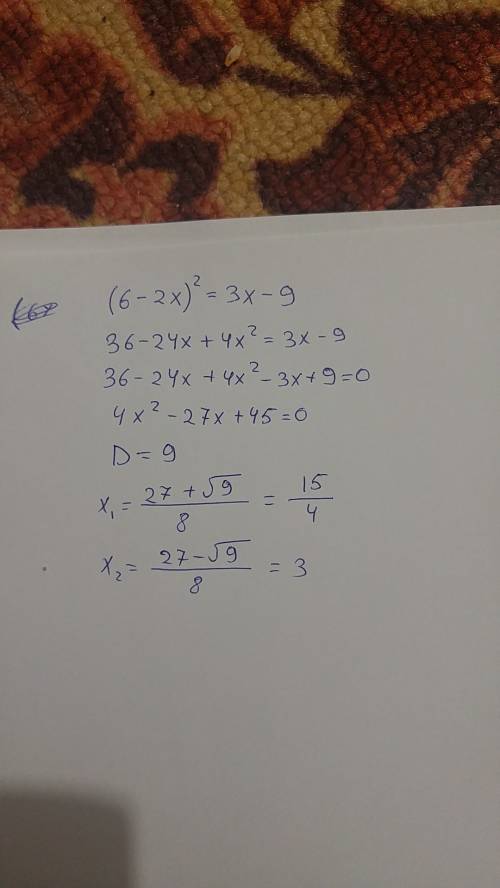 (6-2x)² = 3x-9
36-24x+4x² = 3x-9
36-24x+4x²-3x+9=0
4x²-27x+45=0
D=9
x₁ = (27+√9)/8 = 15/4
x₂ = (27-√9)/8 = 3